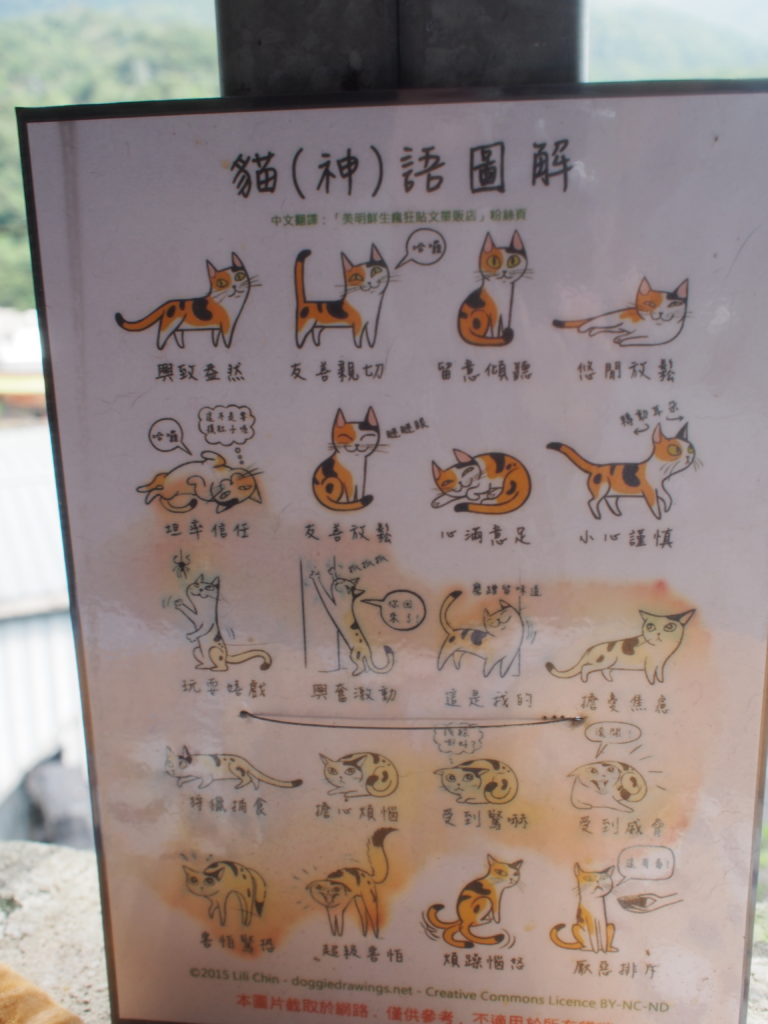 貓(神)語圖解
中文翻譯:「美明鮮生瘋狂貼文單販店」粉絲頁
哈囉
興致盎然
友善親切
留意傾聽
悠閒放鬆
哈囉
這不是要
摸肚子唷
瞇瞇眼
轉動耳朵
坦率信任
友善放鬆
心滿意足
小心謹慎
抓抓抓
你回
來了!
磨蹭留味道
玩耍嬉戲
興奮激動
這是我的
擔憂焦慮
我躲
滾開!
狩獵捕食
擔心煩惱
受到驚嚇
受到威脅
還有看!
害怕驚恐
超級害怕
煩躁惱怒
厭惡排斥
©2015 Lili Chin - doggiedrawings.net - Creative Commons Licence BY-NC-ND
本圖片截取於網路,僅供參考,不適用於所有